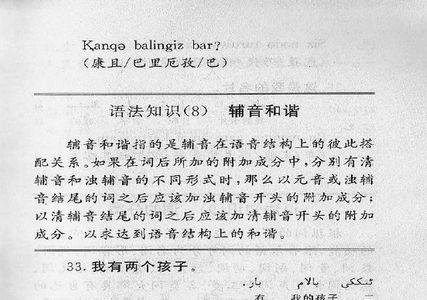 Ⱪanqə balingiz bar?
(康且/巴里厄孜/巴)
语法知识(8) 辅音和谐
辅音和谐指的是辅音在语音结构上的彼此搭
配关系。如果在词后所加的附加成分中，分别有清
辅音和浊辅音的不同形式时，那么以元音或浊辅
音结尾的词之后应该加浊辅音开头的附加成分；
以清辅音结尾的词之后应该加清辅音开头的附加
成分。以求达到语音结构上的和谐。
33. 我有两个孩子。
ئىككى بالام بار.
有 我的孩子 二